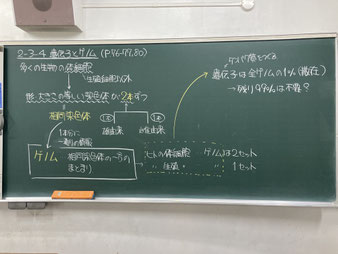 2-3-4 遺伝子とゲノム (P.76-79,80)
多くの生物の体細胞
形、大きさの等しい染色体が2本ずつ
相同染色体
①本 ①本
母由来 父由来
ゲノム 相同染色体の一方の
まとまり
ヒトの体細胞 ゲノムは2セット
〃 生殖 〃 1セット
タンパク質をつくる
遺伝子は全ゲノムの1%(散在)
→残り99%は不要?